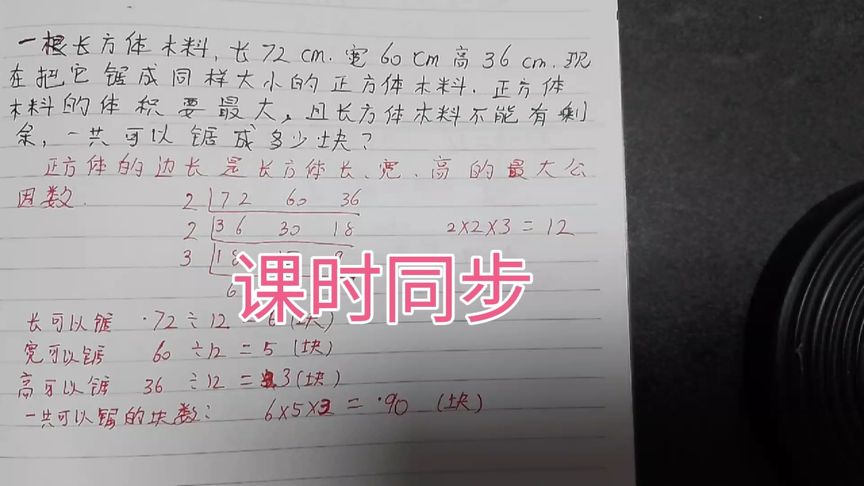 一根长方体木料,长72cm.宽60cm高36cm.现
在把它锯成同样大小的正方体木料.正方体
木料的体积要最大,且长方体木料不能有剩
余,一共可以锯成多少块?
正方体的边长是长方体长、宽、高的最大公
因数.
2 72 60 36
2 36 30 18 2×2×3=12
3 18
6
课时同步
长可以锯 72÷12=6(块)
宽可以锯 60÷12=5(块)
高可以锯 36÷12=3(块)
一共可以锯的块数: 6×5×3=90(块)